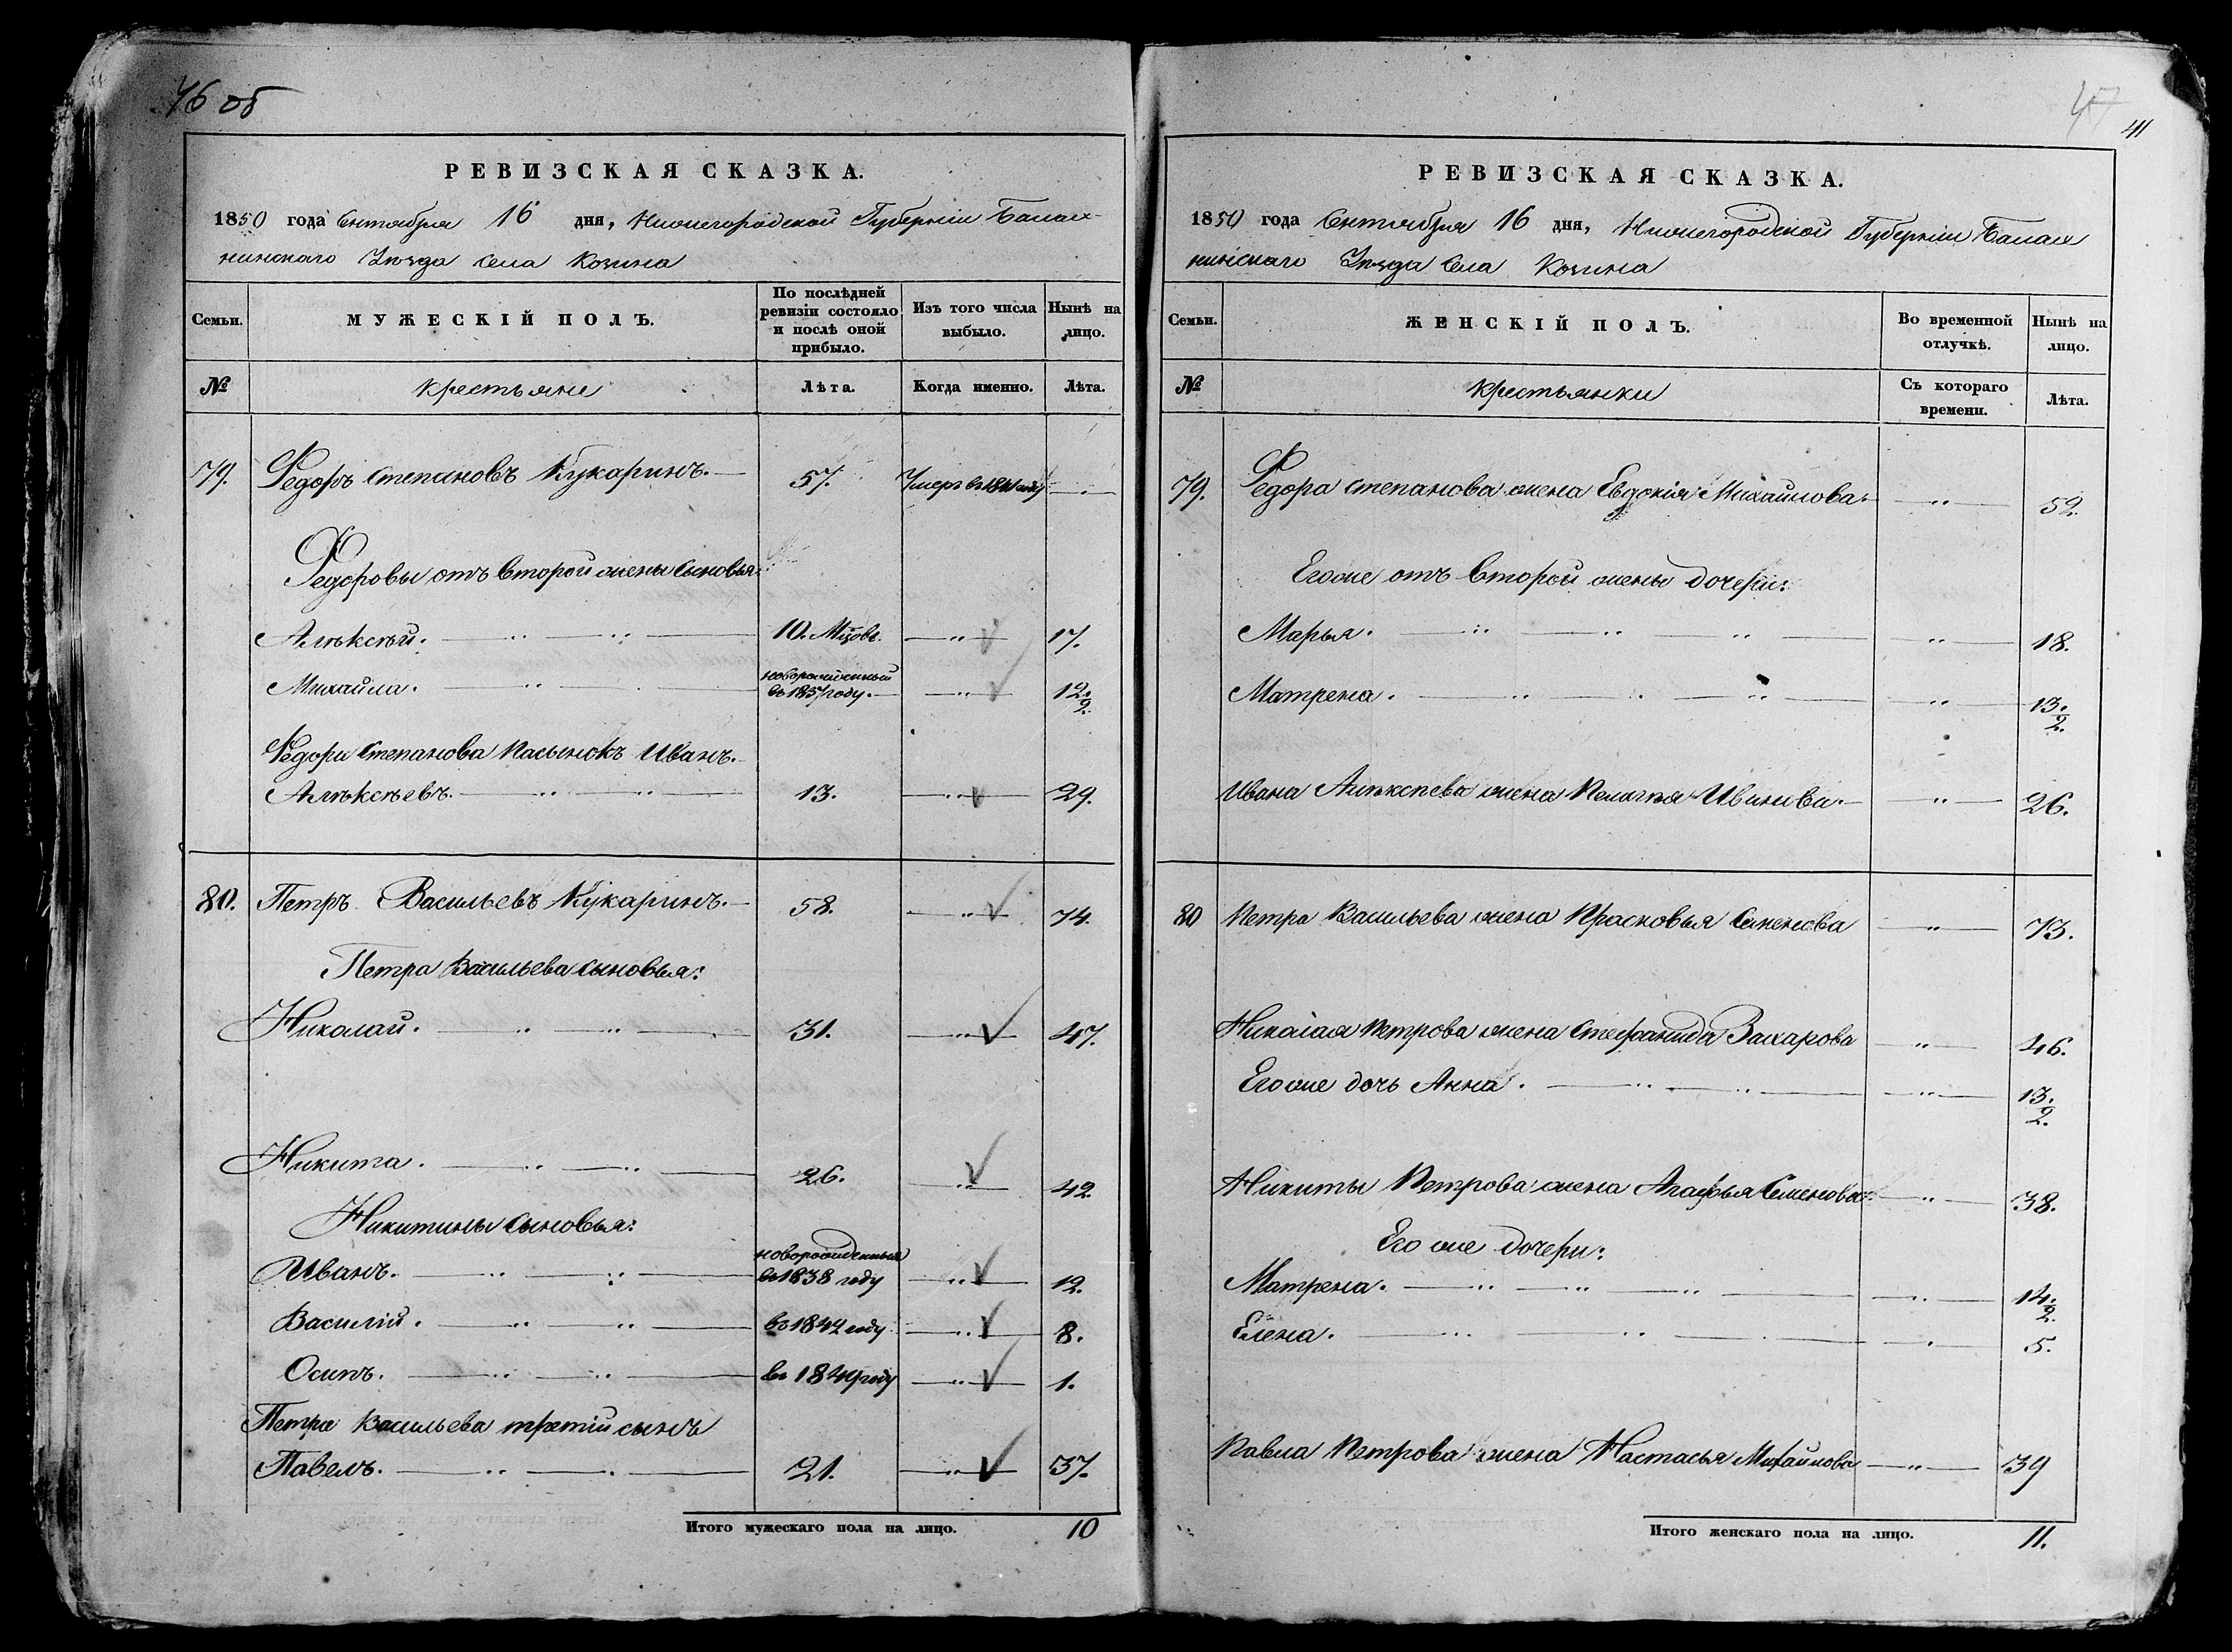 46 об
РЕВИЗСКАЯ СКАЗКА.
1850 года Сентября 16 дня, Нижегородской Губерніи Балах-
нинскаго Уѣзда села Козина
Семьи.
МУЖЕСКІЙ ПОЛЪ.
По послѣдней ревизіи состояло и послѣ оной прибыло.
Изъ того числа выбыло.
Нынѣ на лицо.
№ Крестьяне Лѣта. Когда именно. Лѣта.
79. Федоръ Степановъ Кукаринъ. 57. Умеръ въ году
Федоровы отъ второй жены сыновья
Алѣксѣй. 10. Мцовъ. 17.
Михайла. новорожденный
въ 1837 году. 12 1/2.
Федора Степанова пасынокъ Иванъ.
Алѣксѣевъ. 13. 29.
80. Петръ Васильевъ Кукаринъ. 58. 74.
Петра Васильева сыновья:
Николай. 31. 47.
Никита. 26. 42.
Никитины сыновья:
Иванъ. новорожденный
въ 1838 году 12.
Василій. въ 1842 году 8.
Осипъ. въ 1849 году 1.
Петра Васильева третій сынъ
Павелъ. 21. 37.
Итого мужескаго пола на лицо. 10
47
41
РЕВИЗСКАЯ СКАЗКА.
1850 года Сентября 16 дня, Нижегородской Губерніи Балах
нинскаго Уѣзда Села Козина
Семьи.
ЖЕНСКІЙ ПОЛЪ.
Во временной отлучкѣ.
Нынѣ на лицо.
№ Крестьянки Съ котораго времени. Лѣта.
79. Федора Степанова жена Евдокія Михайлова. 52.
Егоже отъ второй жены дочери:
Марья. 18.
Матрена. 13. 1/2.
Ивана Алѣксѣева жена Пелагѣя Иванова. 26.
80 Петра Васильева жена Прасковья Семенова 73.
Николая Петрова жена Стефанида Захарова 46.
Егоже дочь Анна. 13. 1/2.
Никиты Петрова жена Агафья Семенова 38.
Его же дочери:
Матрена. 14. 1/2.
Елена. 5.
Павла Петрова жена Настасья Михайлова 39
Итого женскаго пола на лицо. 11.